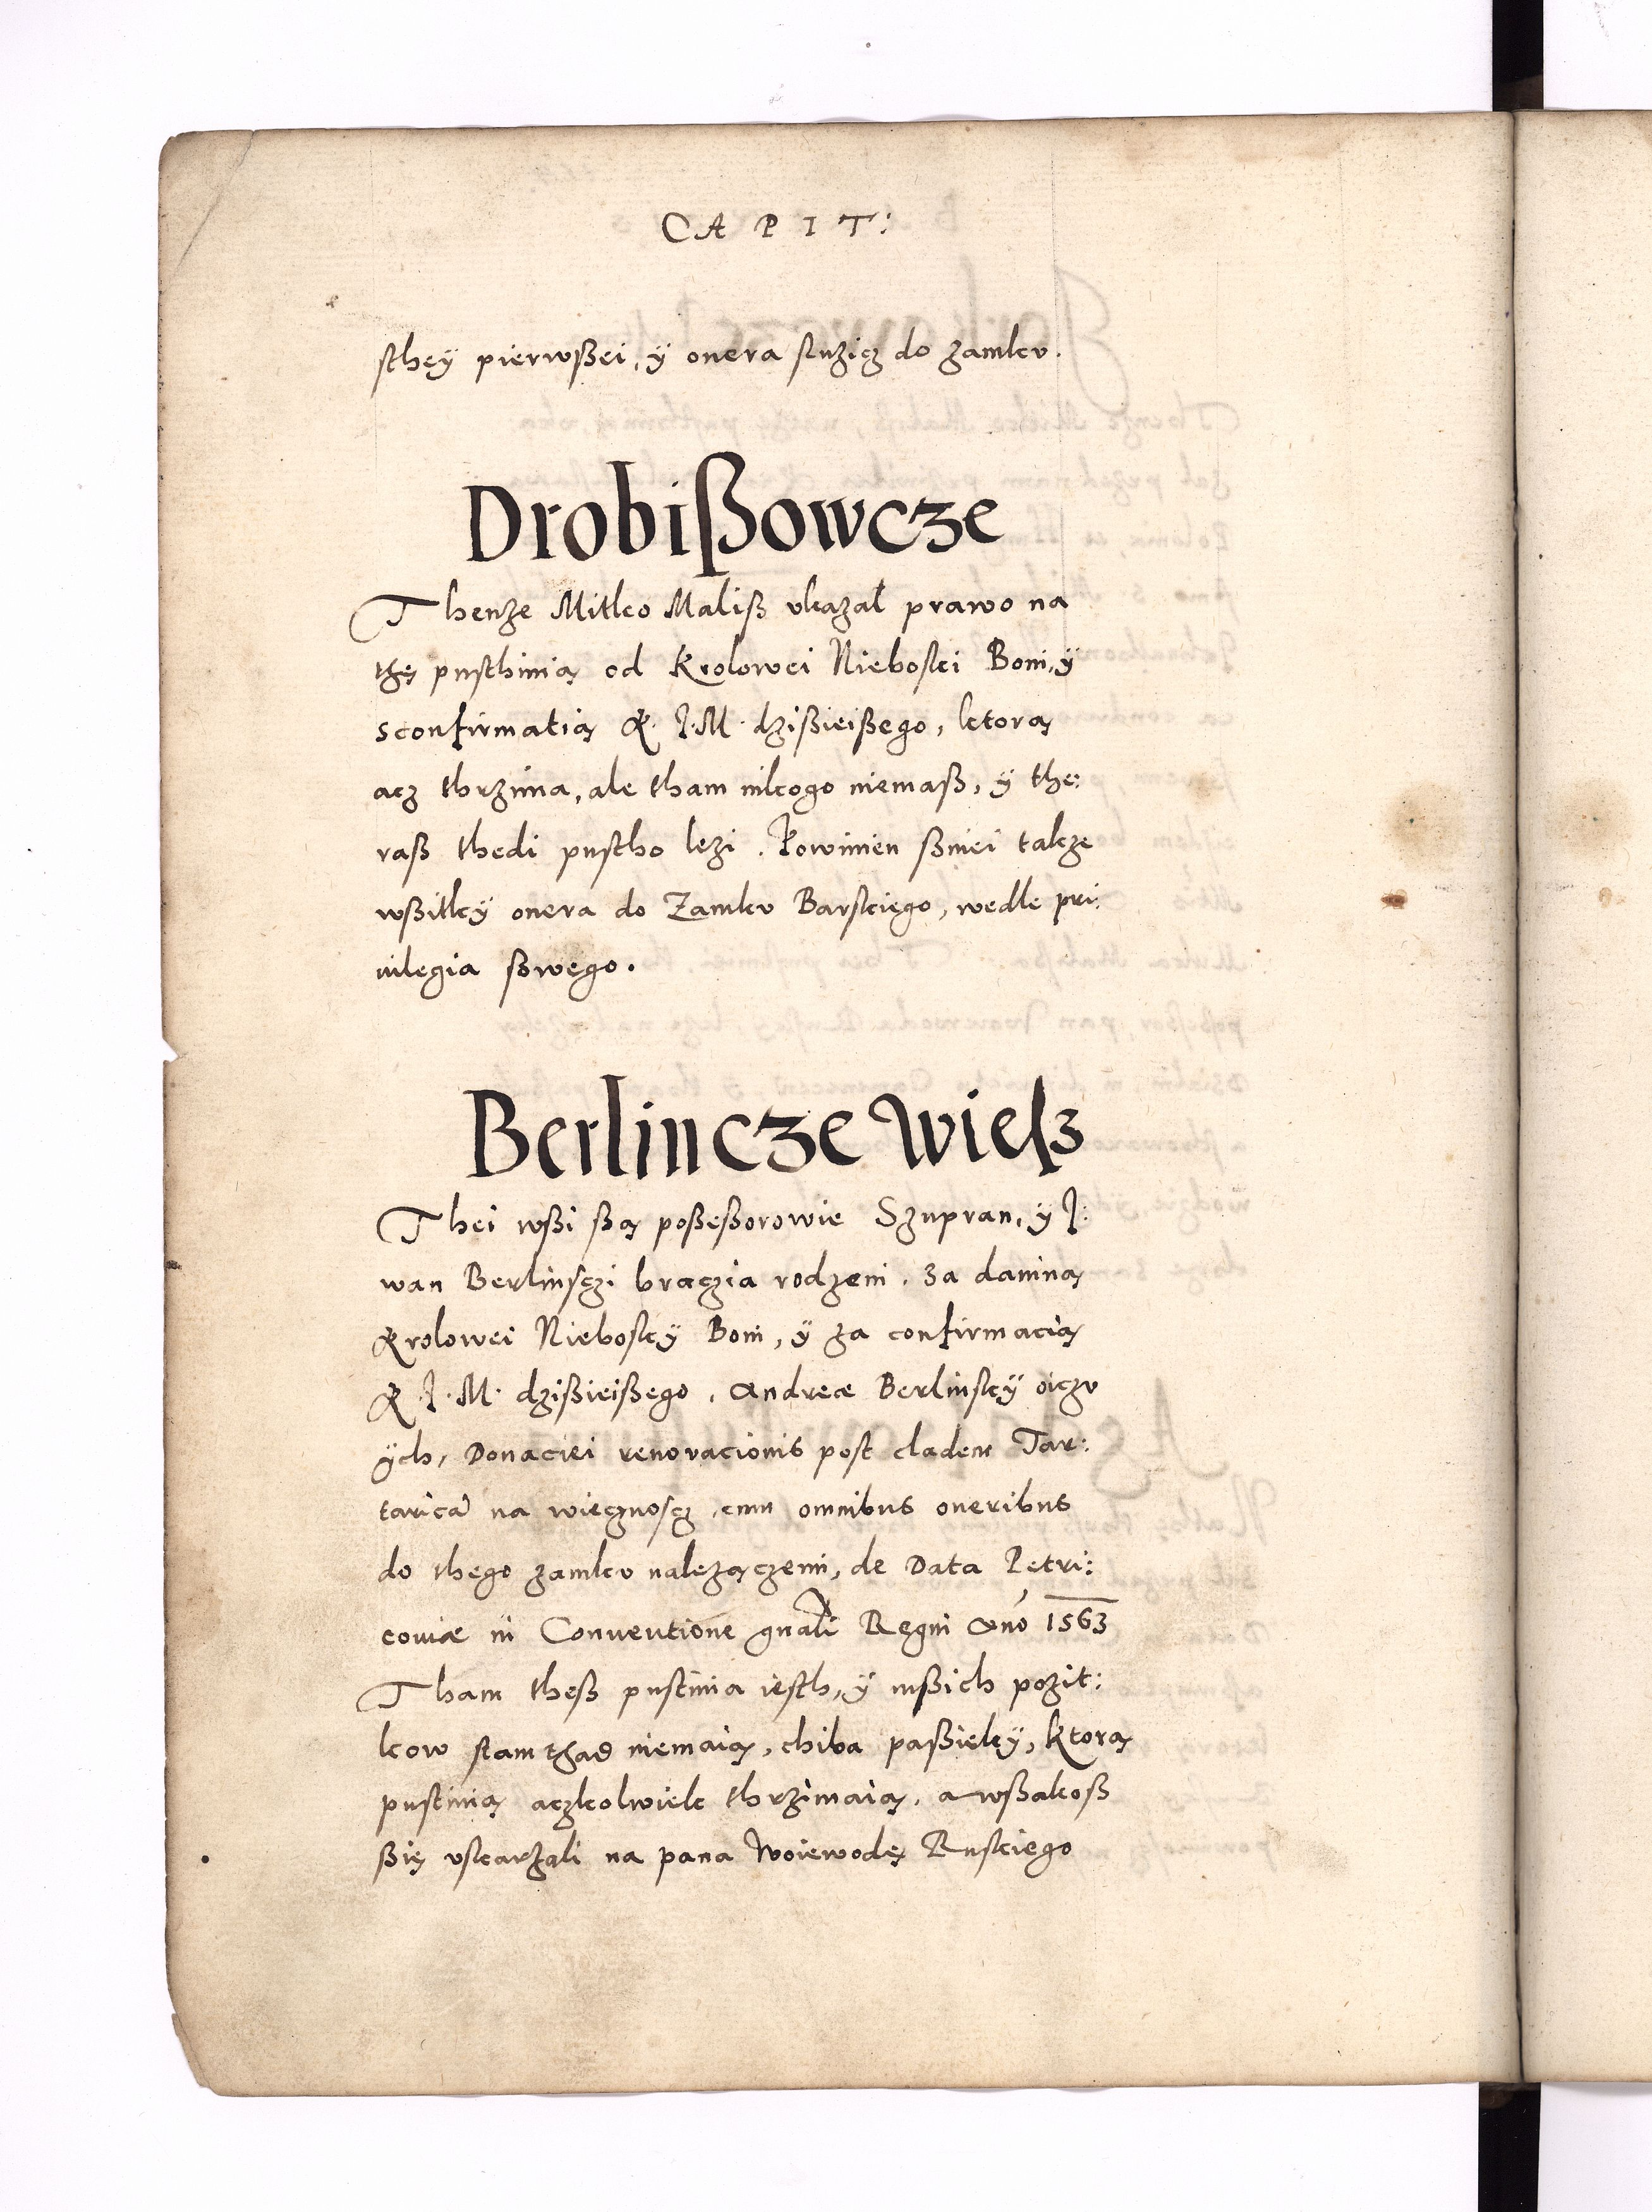 CAPIT:
sthey pierwßei, ÿ onera służicz do zamku.
Drobißowcze
Thenże Mitko Maliß vkazał prawo na
thę pusthinią od Krolowei Nieboskei Boni, ÿ
sconfirmatią K. J. M. dzißieißego, ktorą
acz thrzima, ale tham nikogo niemaß, ÿ the:
raß thedi pustho leży. Powinien ßniei takze
wßitkÿ onera do Zamku Barskiego, wedle pri:
uilegia ßwego.
Berlincze Wieß
Thei wßi ßą poßeßorowie Szupran, ÿ J:
wan Berlinsczi braczia rodzeni. Za daniną
Krolowei Nieboskÿ Boni, ÿ za confirmacią
K. J. M. dzißieißego, Andreæ Berlinskÿ oiczu
ÿch, Donaciei renovacionis post cladem Tar:
taricã na wiecznoscz, cum omnibus oneribus
do thego zamku należączemi, de Data Petri:
couiæ in Conventione gnali Regni Ano 1563
Tham theß pustinia iesth, ÿ inßich pożit:
kow stamthąd niemaią, chiba paßiekÿ, ktorą
pustinią aczkolwiek thrzimaią, a wßakoß
ßię vskarżali na pana Woiewodę Ruskiego